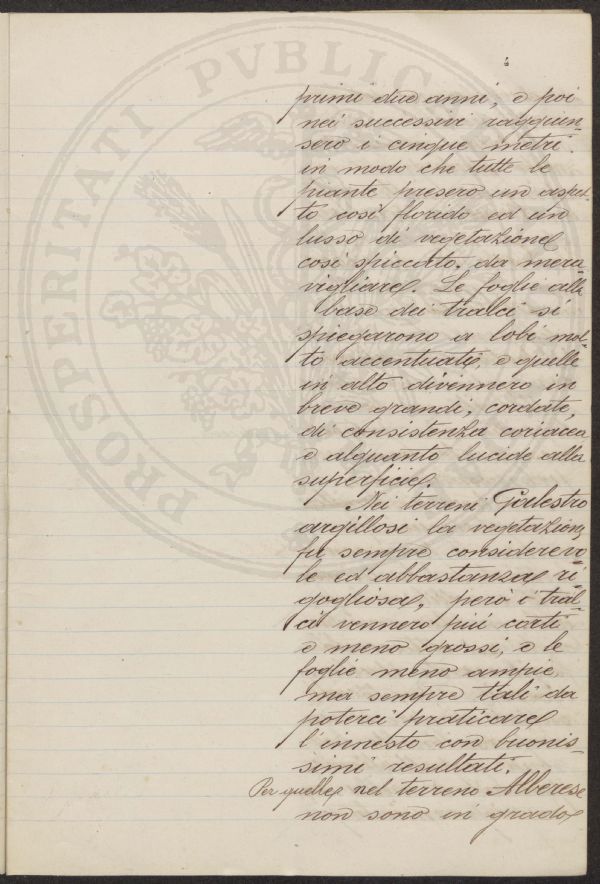 primi due anni, e poi
nei successivi raggiun-
sero i cinque metri.
in modo che tutte le
piante presero un aspet-
to così florido ed un
lusso di vegetazione
così spiccato. da mera-
vigliare. Le foglie alla
base dei tralci si
spiegarono a lobi mol-
to accentuati, e quelle
in alto divennero in
breve grandi, cordate,
di consistenza coriacea
e alquanto lucide alla
superficie.
Nei terreni Galestro
argillosi la vegetazione
fu sempre considerevo-
le ed abbastanza ri-
gogliosa, però i tral-
ci vennero più corti
e meno grossi, e le
foglie meno ampie
ma sempre tali da
poterci praticare
l'innesto con buonis-
simi resultati.
Per quelle nel terreno Alberese
non sono in grado
PROSPERITATI PVBLIC